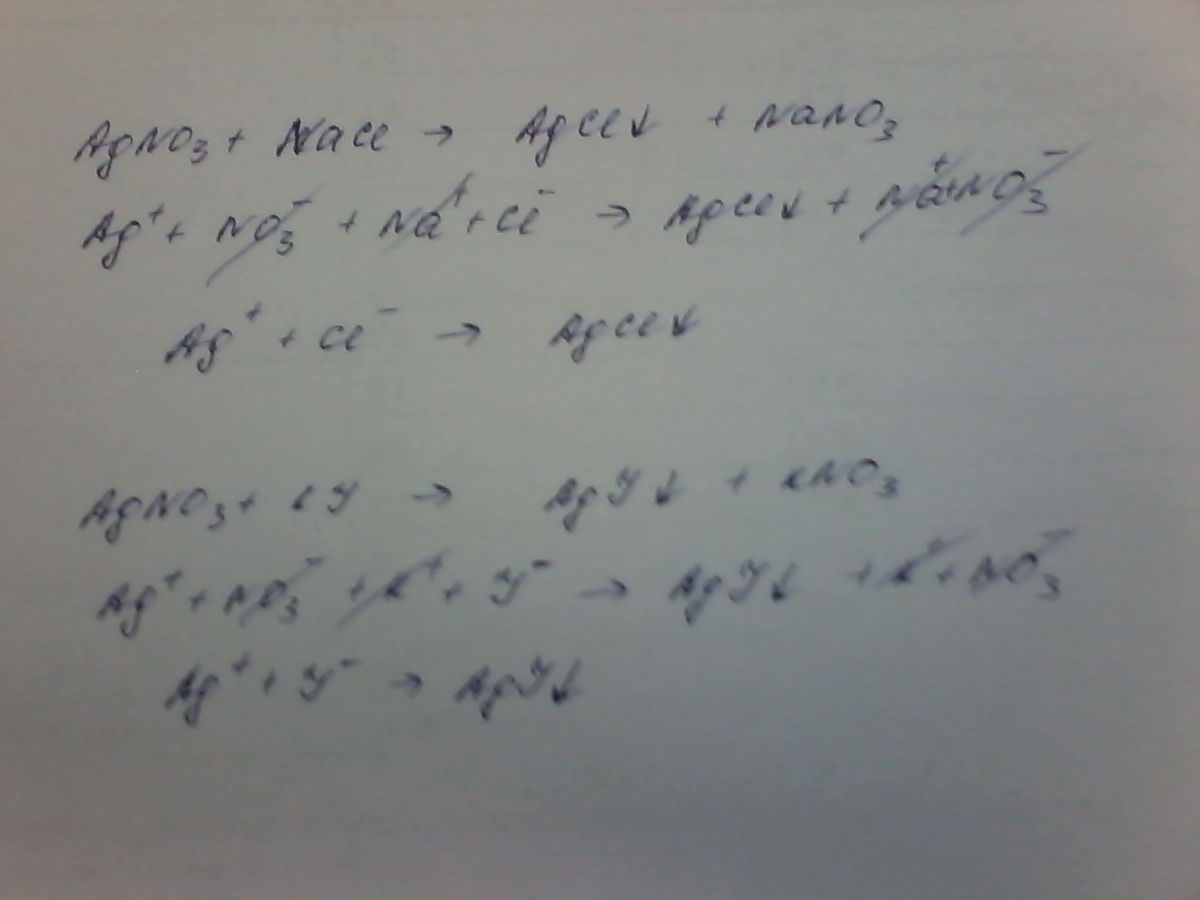 AgNO₃ + NaCl → AgCl↓ + NaNO₃
Ag⁺ + NO₃⁻ + Na⁺ + Cl⁻ → AgCl↓ + Na⁺ + NO₃⁻
Ag⁺ + Cl⁻ → AgCl↓
AgNO₃ + KJ → AgJ↓ + KNO₃
Ag⁺ + NO₃⁻ + K⁺ + J⁻ → AgJ↓ + K⁺ + NO₃⁻
Ag⁺ + J⁻ → AgJ↓